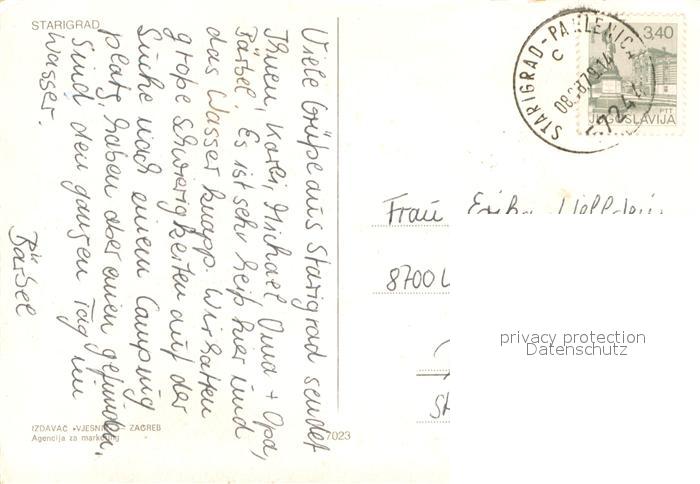 STARIGRAD
Viele Grüße aus Starigrad sendet
Ihnen, Karli, Michael Oma + Opa,
Bärbel. Es ist sehr heiß hier und
das Wasser knapp. Wir hatten
große Schwierigkeiten auf der
Suche nach einem Camping
platz, haben aber einen gefunden.
Sind den ganzen Tag im
Wasser.
Bärbel
IZDAVAČ »VJESNIK« — ZAGREB
Agencija za marketing
7023
STARIGRAD-PAKLENICA
C
08.08.79.14
57244
3,40
PTT
JUGOSLAVIJA
Frau Erika
8700
privacy protection
Datenschutz